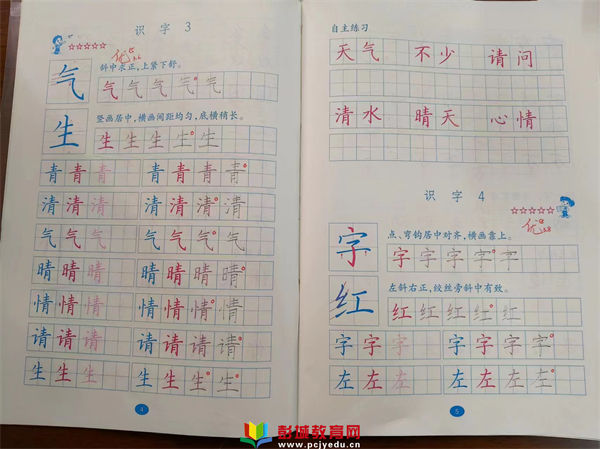 识字3
优
气
斜中求正,上紧下舒。
气气气气气
生
竖画居中,横画间距均匀,底横稍长。
生生生生生
青青青 青青青青
清清清 清清清清
气气气 气气气气
晴晴晴 晴晴晴晴
情情情 情情情情
请请请 请请请请
生生生 生生生生
4
自主练习
天气 不少 请问
清水 晴天 心情
识字4
优
字
点、弯钩居中对齐,横画靠上。
字字字字字
红
左斜右正,绞丝旁斜中有致。
红红红红红
字字字 字字字字
左左左 左左左左
5
彭城教育网
www.pcjyedu.cn